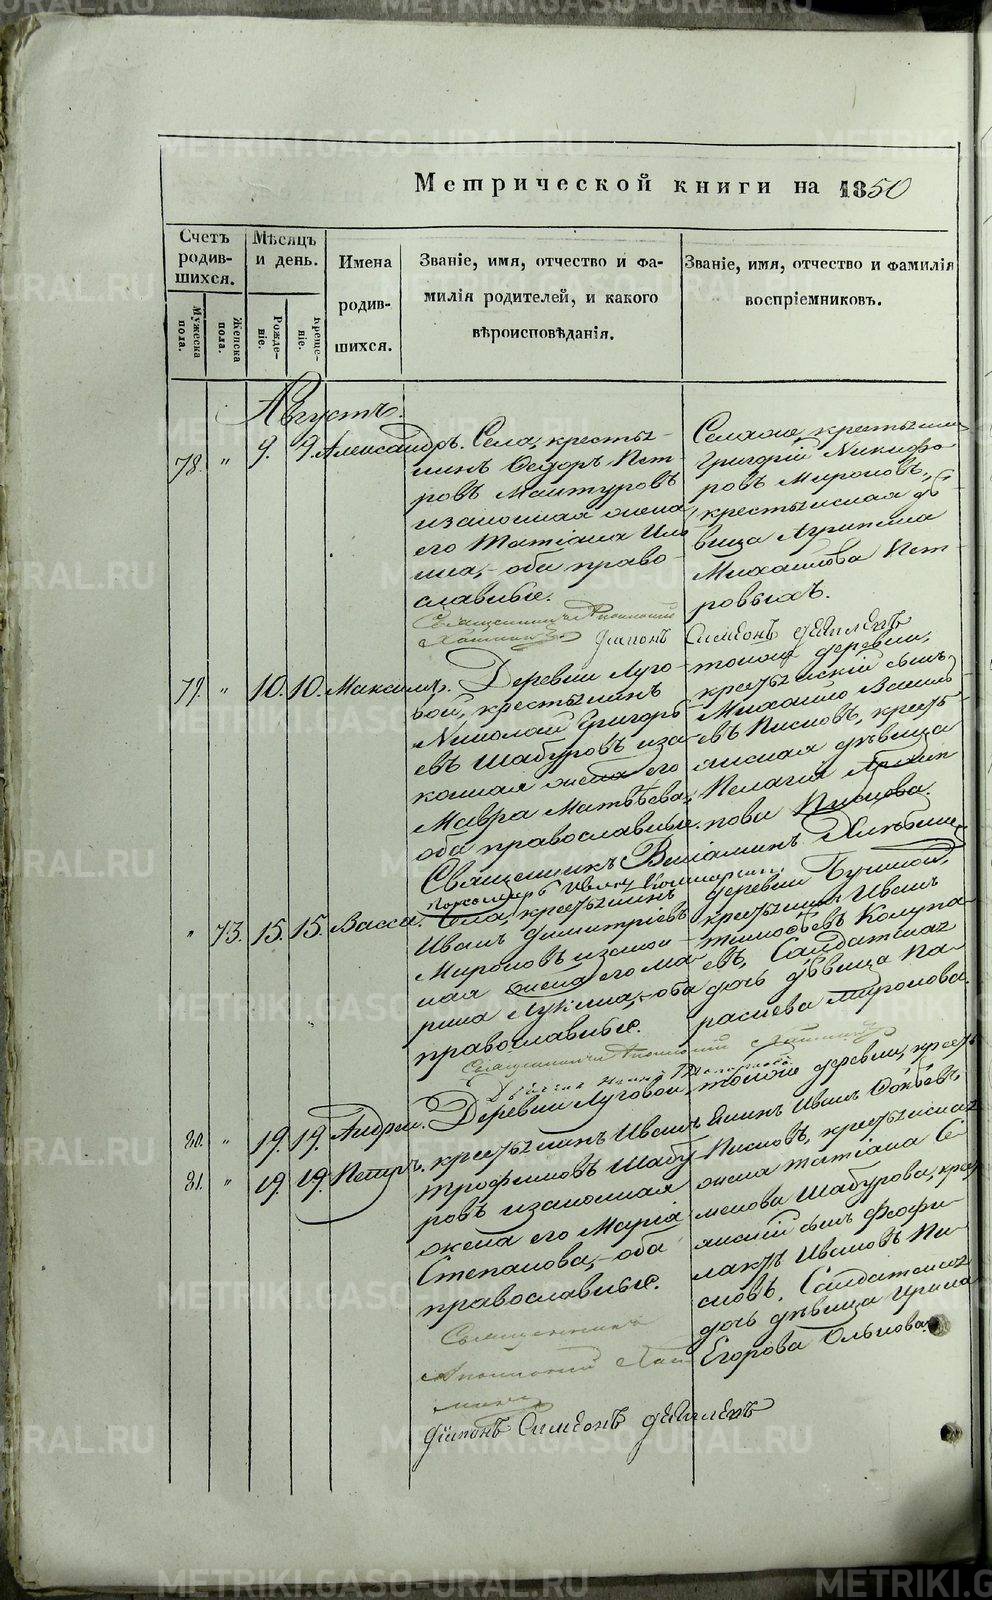 Метрической книги на 1850
Счетъ родив-шихся.
Мужеска пола.
Женска пола.
Мѣсяцъ и день.
Рожде-ніе.
Креще-ніе.
Имена родив-шихся.
Званіе, имя, отчество и фа-
милія родителей, и какого
вѣроисповѣданія.
Званіе, имя, отчество и фамилія
воспріемниковъ.
Августъ.
78. " 9. 9. Александръ.
Села, кресть-
янинъ Ѳедоръ Пет-
ровъ
изаконная жена
его Татіана Иль
ина, оба право-
славные.
Священникъ
Дьяконъ Симеонъ
Селаже, крестьянинъ
Григорій Никифо
ровъ Мироновъ,
крестьянская дѣ
вица Агрипина
Михаилова Пет-
ровыхъ.
79. " 10. 10. Максимъ.
Деревни Луго-
вой, крестьянинъ
Николай Григорь-
евъ Шабуровъ иза-
конная жена его
Мавра Матвѣева,
оба православные.
Священникъ Веніаминъ
тойже деревни,
крестьянскій сынъ
Михаило Василь
евъ Писновъ, кресть
янская дѣвица
Пелагія Архип
пова Писцова.
" 73. 15. 15. Васса.
Села, крестьянинъ
Иванъ Димитріевъ
Мироновъ изакон-
ная жена его Ма-
рина Лукина, оба
православные.
Священникъ
деревни
крестьянинъ Иванъ
Тимоѳеевъ Колупа-
евъ, Салдатская
дочь дѣвица Па-
раскева Миронова.
80. " 19. 19. Андрей.
81. " 19. 19. Петръ.
Деревни Луговой,
крестьянинъ Иванъ
Трофимовъ Шабу
ровъ изаконная
жена его Марія
Степанова, оба
православные.
Священникъ
Дьяконъ Симеонъ
тойже деревни, кресть
янинъ Иванъ
Писновъ, крестьянская
жена Татіана Се
менова Шабурова, крес
янскій сынъ Феофи
лактъ Ивановъ Пи-
сновъ. Салдатская
дочь дѣвица Ирина
Егорова Олькова.
METRIKI.GASO-URAL.RU